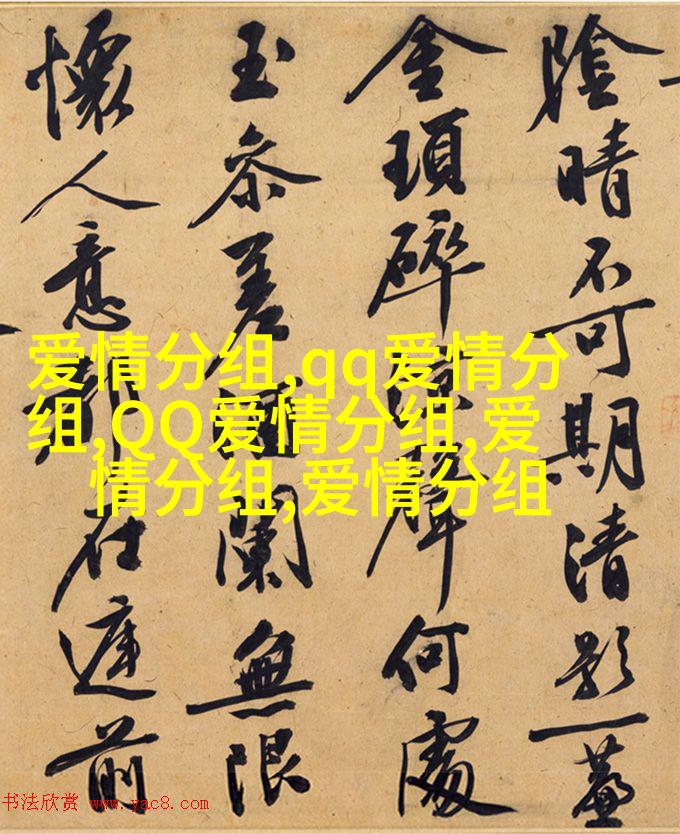 陰晴不可期清影一
金瑣碎聲何處
玉參差闌無限
懷人意在前
爱情分组,qq爱情分
组,QQ爱情分组,爱
情分组,爱情分组
书法欣赏 www.yac8.com